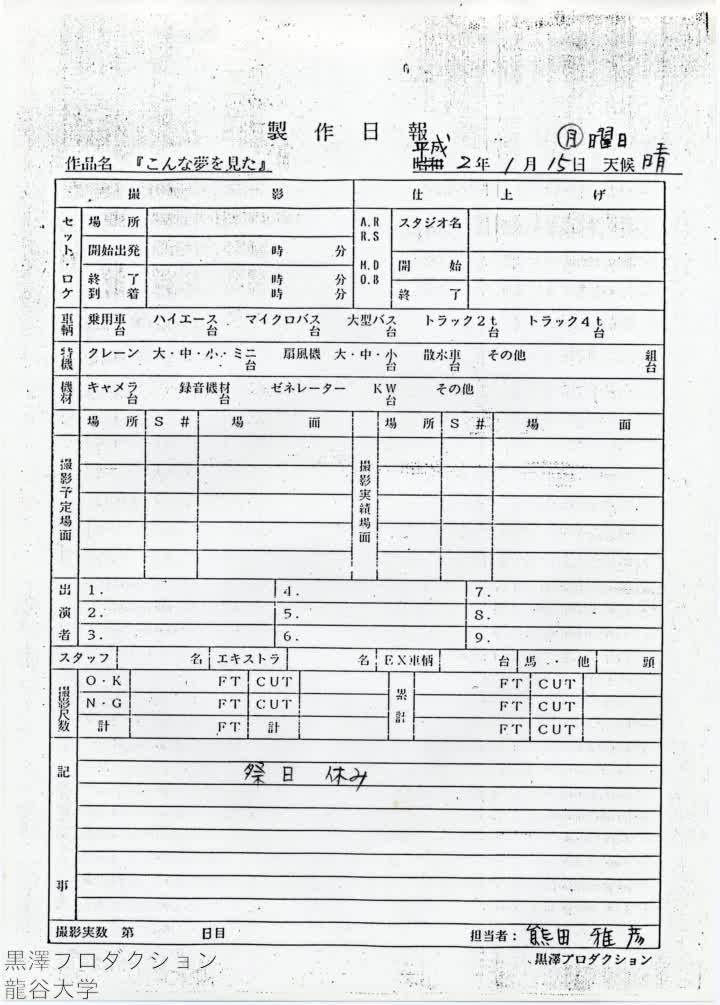 製作日報
㊊曜日
作品名 『こんな夢を見た』 平成 昭和 2年 1月 15日 天候 晴
撮影 仕上げ
セット・ロケ 場所 A.R R.S スタジオ名
開始出発 時 分 M.D O.B 開始
終了 時 分 終了
到着 時 分
車輌 乗用車 台 ハイエース 台 マイクロバス 台 大型バス 台 トラック2t 台 トラック4t 台
特機 クレーン 大・中・小・ミニ 台 扇風機 大・中・小 台 散水車 台 その他 組 台
機材 キャメラ 台 録音機材 台 ゼネレーター KW 台 その他
場所 S # 場面 場所 S # 場面
撮影予定場面 撮影実績場面
出演者
1. 4. 7.
2. 5. 8.
3. 6. 9.
スタッフ 名 エキストラ 名 EX車輌 台 馬・他 頭
撮影尺数 O・K FT CUT 累計 FT CUT
N・G FT CUT FT CUT
計 FT 計 FT CUT
記事
祭日 休み
撮影実数 第 日目 担当者: 熊田 雅彦
黒澤プロダクション
黒澤プロダクション
龍谷大学